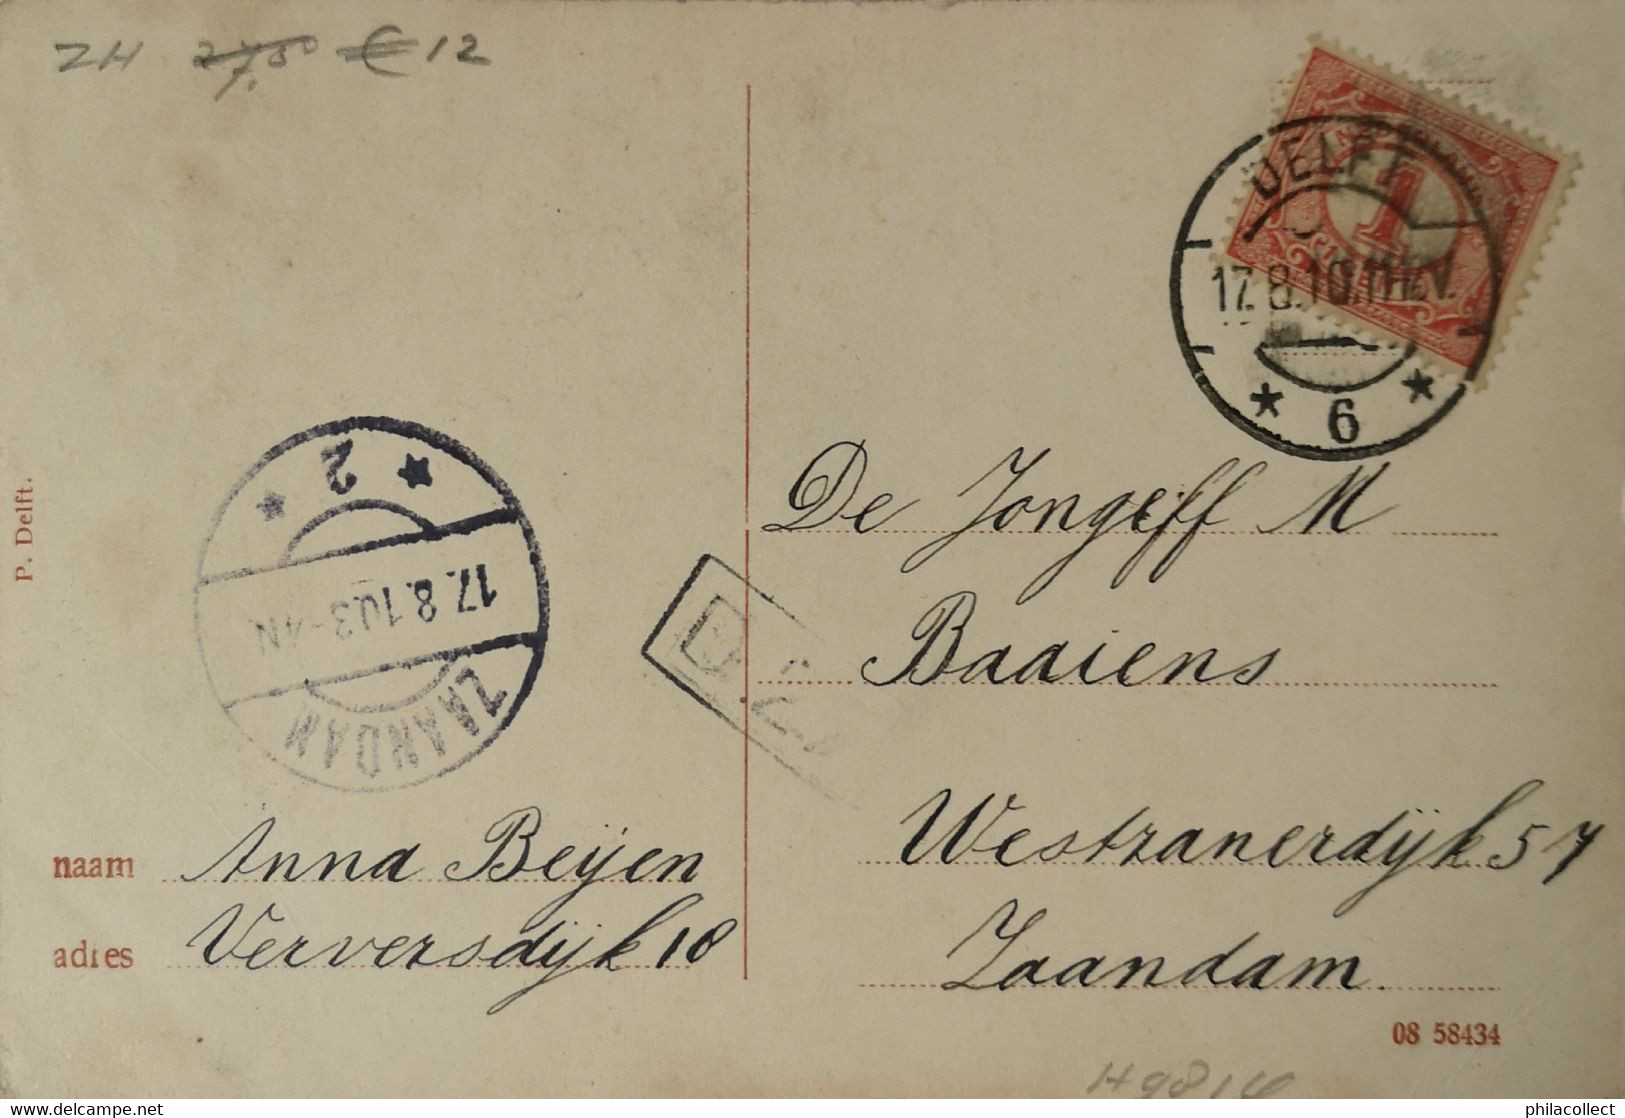 ZH 27,50 € 12
DELFT
17.8.10.11-12V.
* 6 *
1
* 2 *
17.8.10.3-4N
ZAANDAM
P. Delft.
De Jongeff M
Baaiens
Westzanerdijk 57
Zaandam.
naam Anna Beijen
adres Verversdijk 18
08 58434
H9816
philacollect